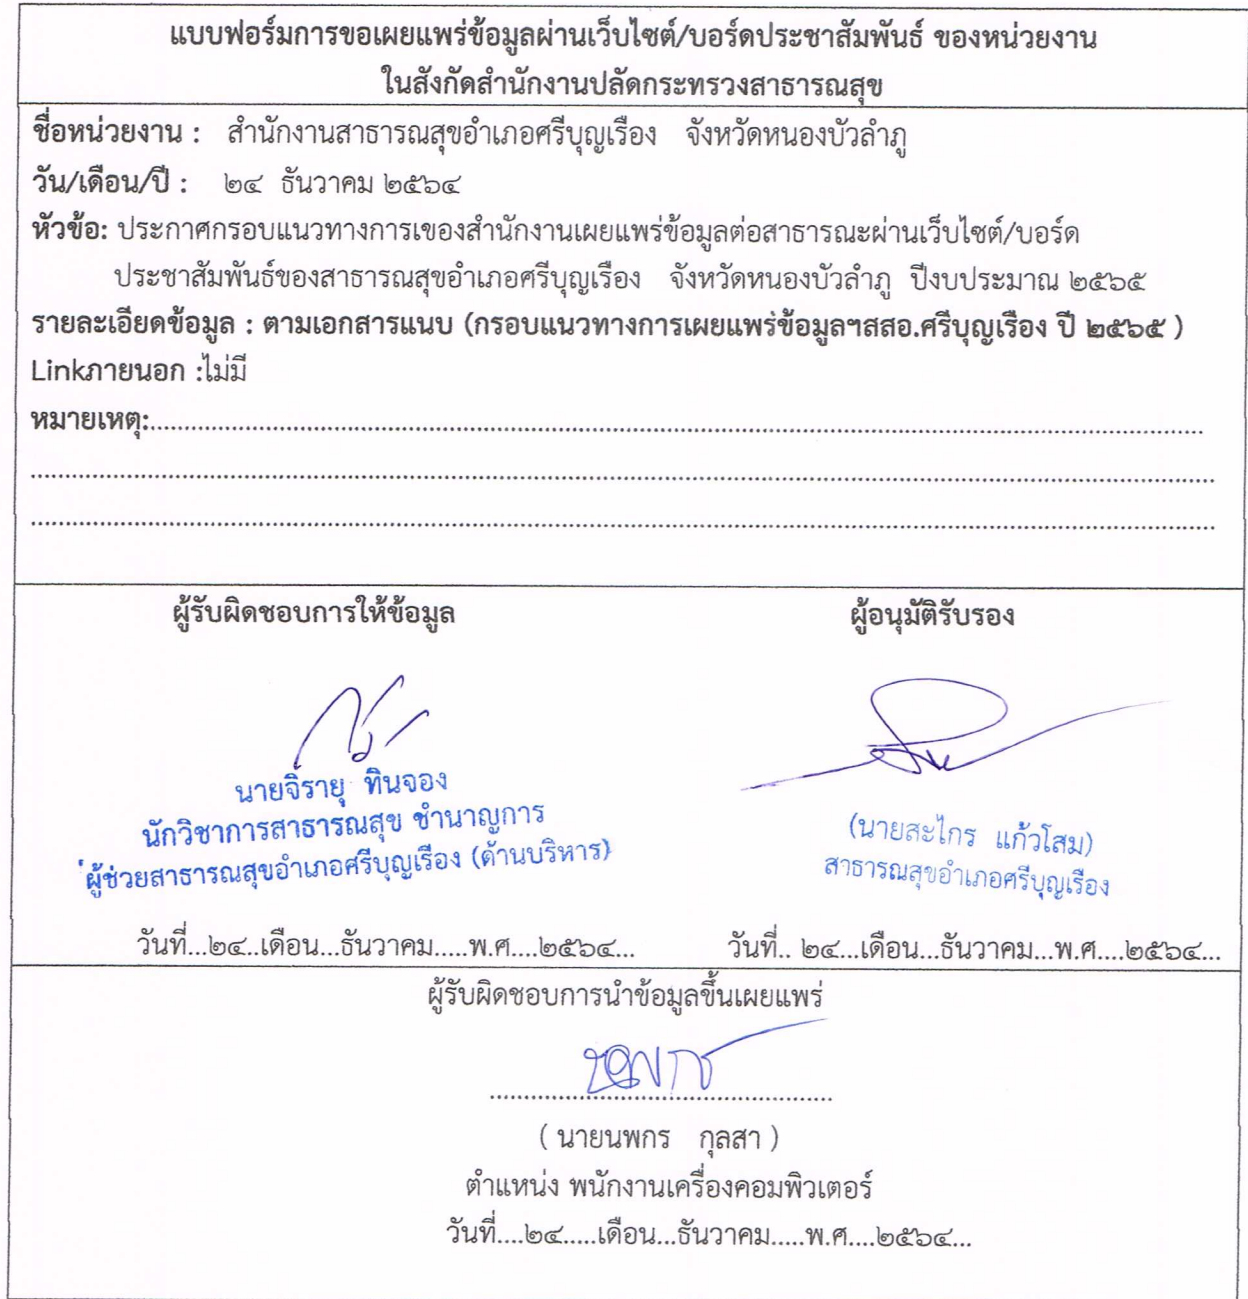 แบบฟอร์มการขอเผยแพร่ข้อมูลผ่านเว็บไซต์/บอร์ดประชาสัมพันธ์ ของหน่วยงาน
ในสังกัดสำนักงานปลัดกระทรวงสาธารณสุข
ชื่อหน่วยงาน : สำนักงานสาธารณสุขอำเภอศรีบุญเรือง จังหวัดหนองบัวลำภู
วัน/เดือน/ปี : ๒๔ ธันวาคม ๒๕๖๔
หัวข้อ: ประกาศกรอบแนวทางการเของสำนักงานเผยแพร่ข้อมูลต่อสาธารณะผ่านเว็บไซต์/บอร์ด
ประชาสัมพันธ์ของสาธารณสุขอำเภอศรีบุญเรือง จังหวัดหนองบัวลำภู ปีงบประมาณ ๒๕๖๕
รายละเอียดข้อมูล : ตามเอกสารแนบ (กรอบแนวทางการเผยแพร่ข้อมูลฯสสอ.ศรีบุญเรือง ปี ๒๕๖๕ )
Linkภายนอก :ไม่มี
หมายเหตุ:..........
ผู้รับผิดชอบการให้ข้อมูล ผู้อนุมัติรับรอง
นายจิรายุ ทินจอง
นักวิชาการสาธารณสุข ชำนาญการ
ผู้ช่วยสาธารณสุขอำเภอศรีบุญเรือง (ด้านบริหาร)
(นายสะไกร แก้วโสม)
สาธารณสุขอำเภอศรีบุญเรือง
วันที่...๒๔..เดือน...ธันวาคม.....พ.ศ....๒๕๖๔... วันที่.. ๒๔...เดือน...ธันวาคม...พ.ศ....๒๕๖๔...
ผู้รับผิดชอบการนำข้อมูลขึ้นเผยแพร่
( นายนพกร กุลสา )
ตำแหน่ง พนักงานเครื่องคอมพิวเตอร์
วันที่....๒๔.....เดือน...ธันวาคม.....พ.ศ....๒๕๖๔...